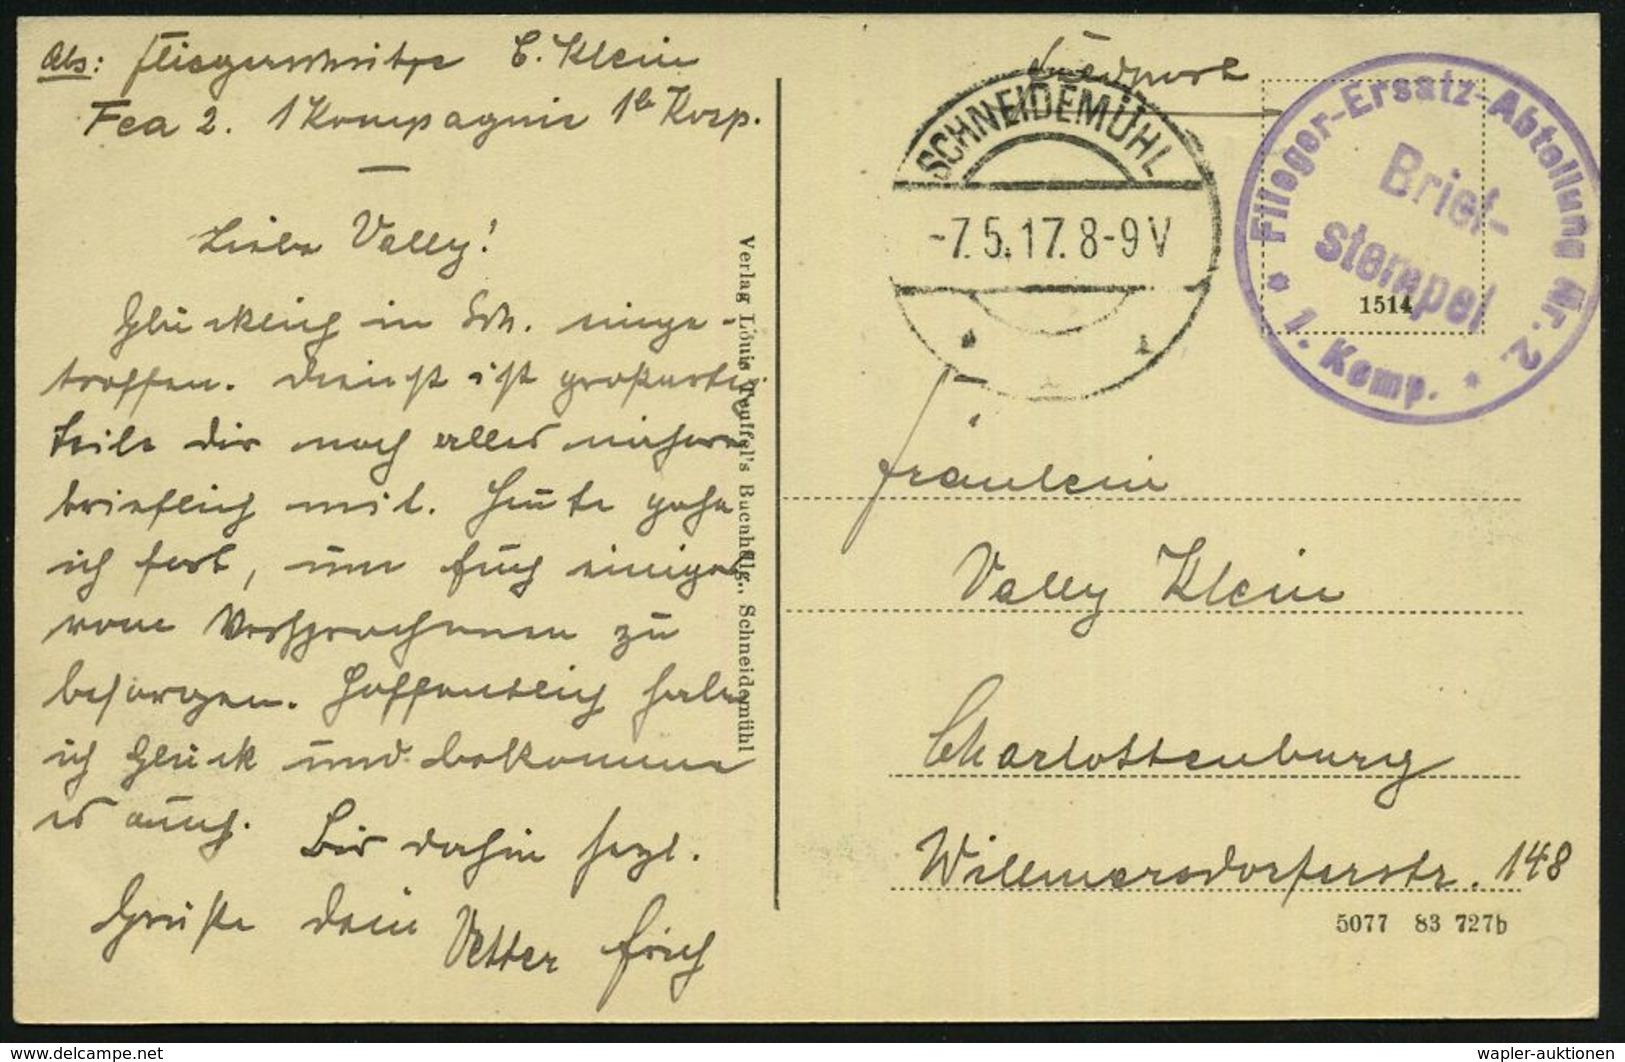 Abs: Fliegerschütze E. Klein
Fea 2. 1 Kompagnie 1te Korp.
Liebe Vally!
Glücklich in Sch. einge-
troffen. Dienst ist großartig
teile dir noch alles nähere
brieflich mit. Heute gehe
ich fort, um Euch einiges
vom Versprochenen zu
besorgen. Hoffentlich habe
ich Glück und bekomme
es auch. Bis dahin herzl.
Grüße dein Vetter Erich
Verlag Louis Teuffel's Buchhdlg., Schneidemühl
Feldpost
SCHNEIDEMÜHL
-7.5.17.8-9V
* 1
Flieger-Ersatz-Abteilung Nr. 2
* 1. Komp. *
Brief-
stempel
1514
Fräulein
Vally Klein
Charlottenburg
Willmersdorferstr. 148
5077 83 727b
https://www.delcampe.net
wapler-auktionen